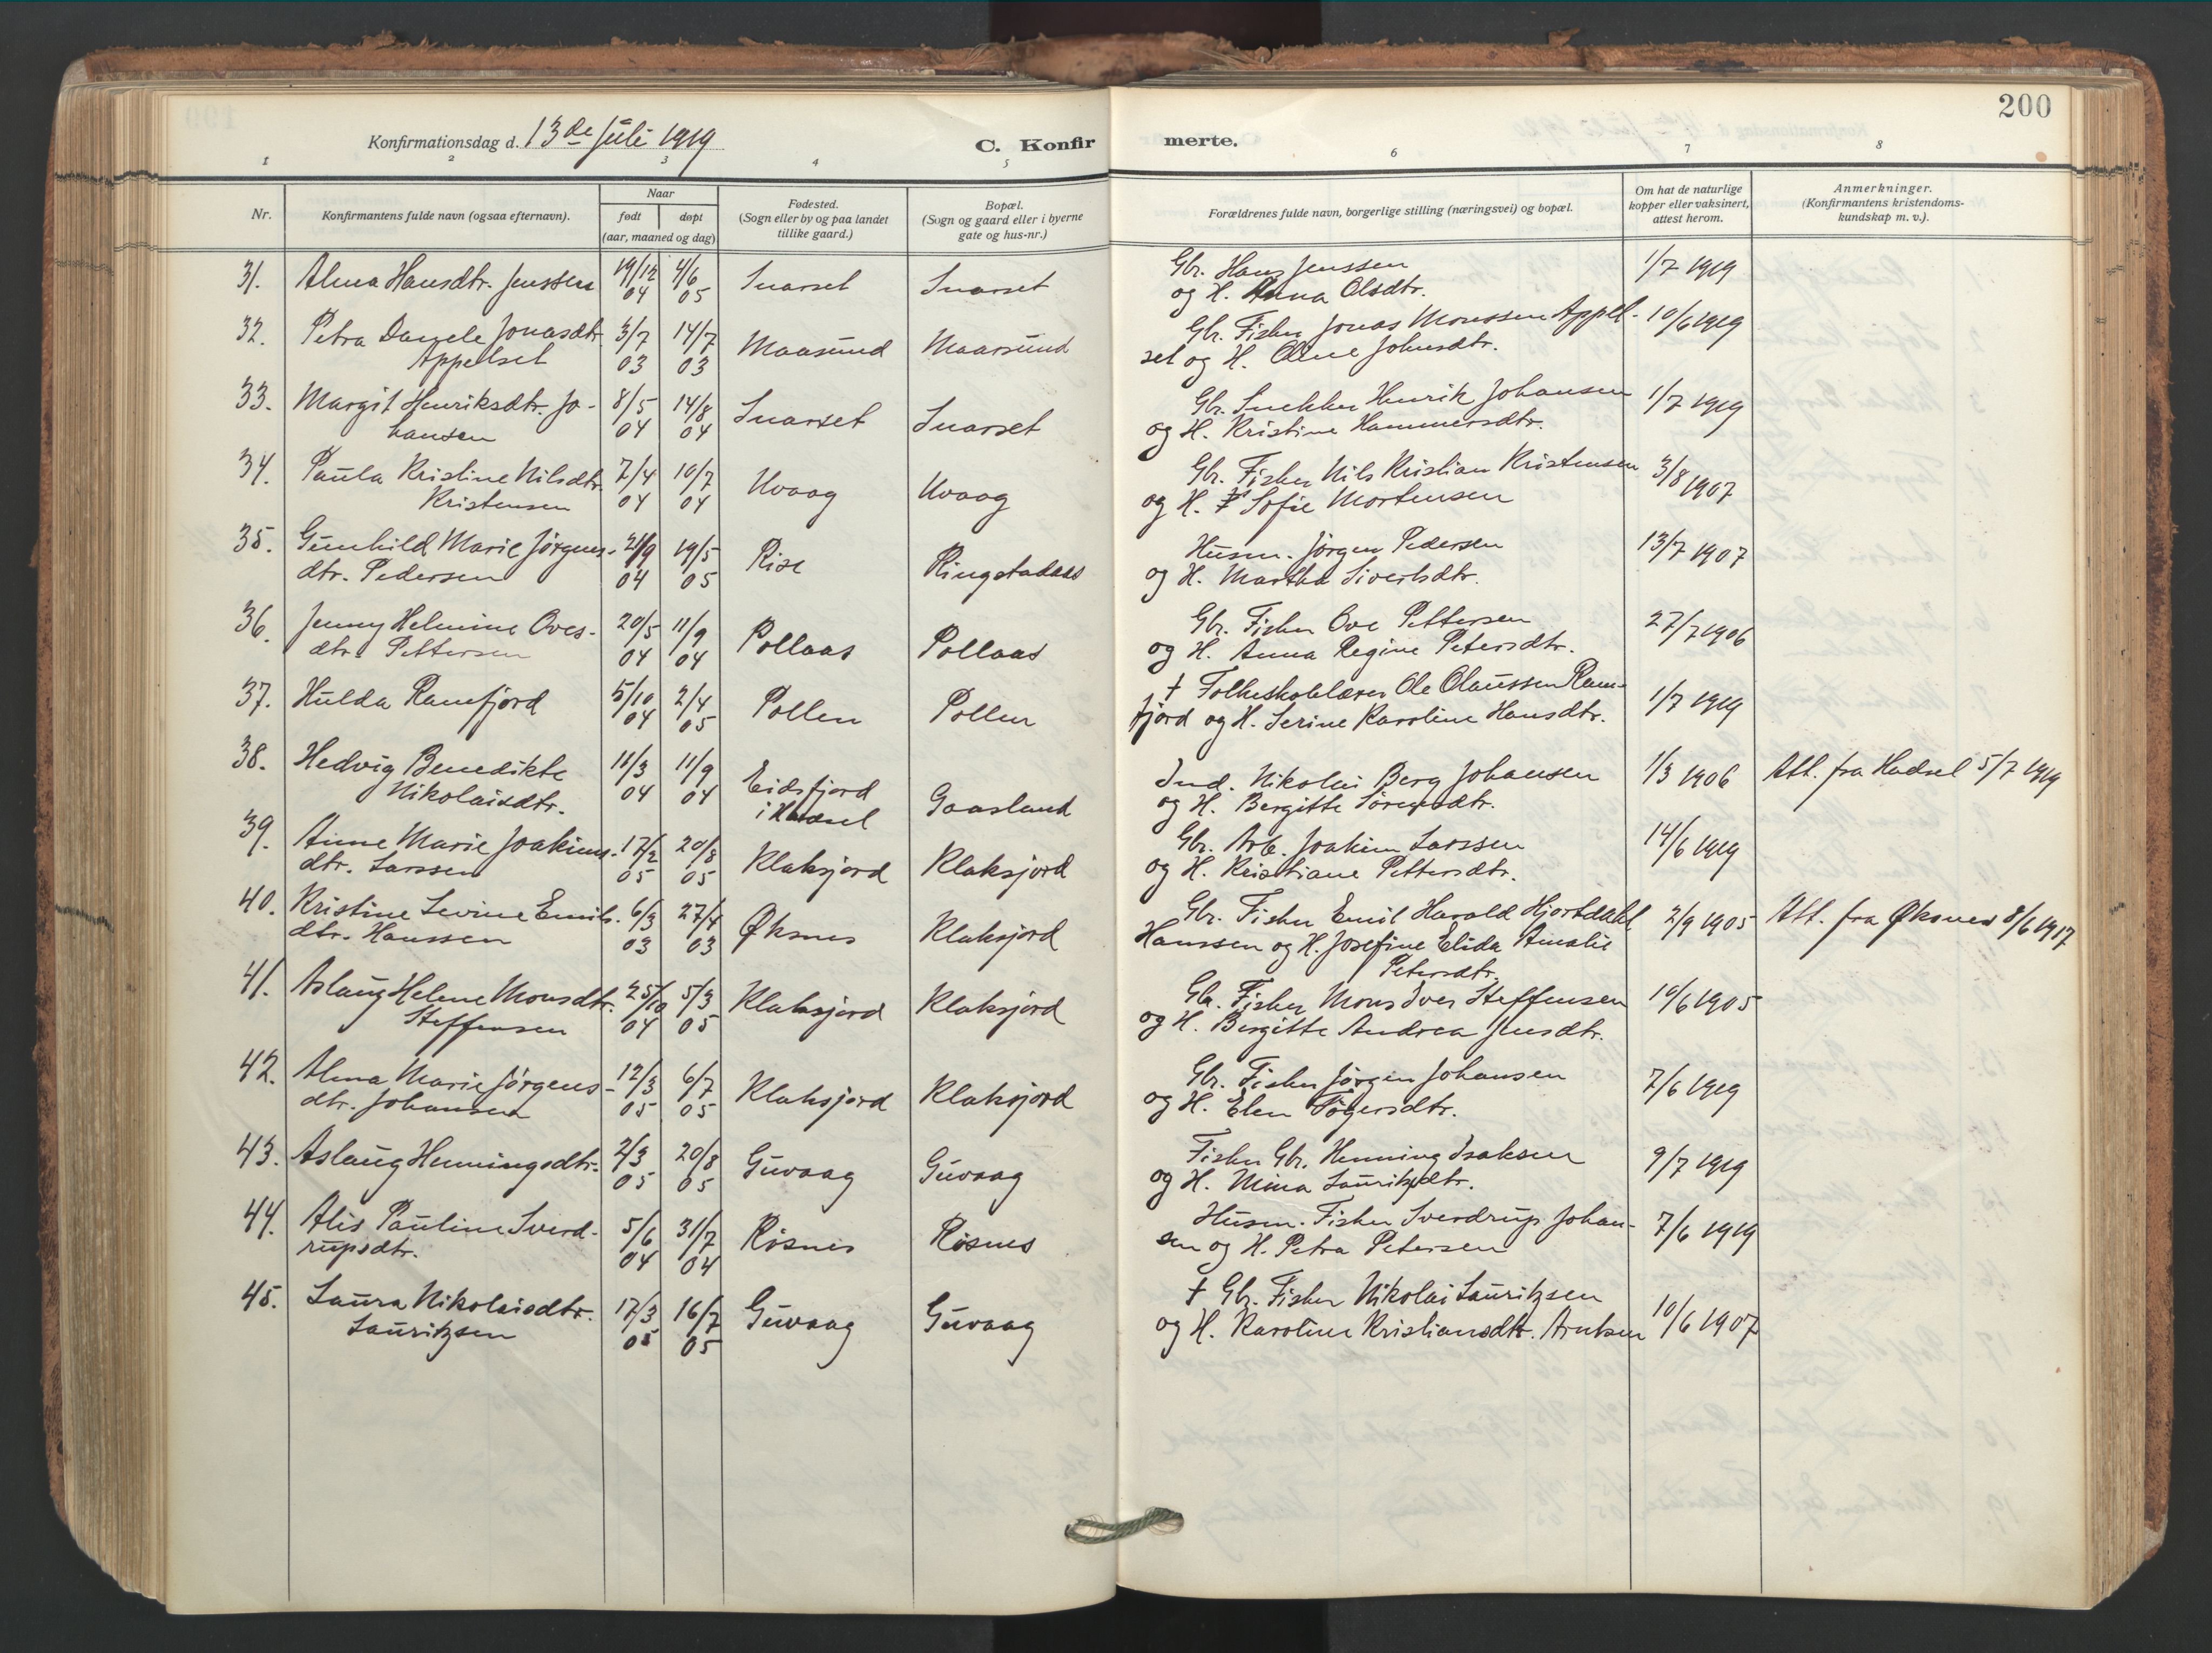 200
Konfirmationsdag d. 13de Juli 1919
C. Konfir
merte.
1 2 3 4 5 6 7 8
Nr.
Konfirmantens fulde navn (ogsaa efternavn).
Naar
født døpt
(aar, maaned og dag)
Fødested.
(Sogn eller by og paa landet
tillike gaard.)
Bopæl.
(Sogn og gaard eller i byerne
gate og hus-nr.)
Forældrenes fulde navn, borgerlige stilling (næringsvei) og bopæl.
Om hat de naturlige
kopper eller vaksinert,
attest herom.
Anmerkninger.
(Konfirmantens kristendoms-
kundskap m. v.).
31. Alma Hansdtr. Jenssen 19/12 4/6 Snarset Snarset Gbr. Hans Jenssen 1/7 1919
04 05 og H. Anna Olsdtr.
32. Petra Daniele Jonasdtr. 3/7 14/7 Maasund Maarsund Gbr. Fisker Jonas Monssen Appel- 10/6 1919
Appelset 03 03 set og H. Oline Johnsdtr.
33. Margit Henriksdtr. Jo- 8/5 14/8 Snarset Snarset Gbr. Snekker Henrik Johansen 1/7 1919
hansen 04 04 og H. Kristine Hammersdtr.
34. Paula Kristine Nilsdtr. 7/4 10/7 Uvaag Uvaag Gbr. Fisker Nils Kristian Kristensen 3/8 1907
Kristensen 04 04 og H. Sofie Mortensen
35. Gunhild Marie Jørgens- 21/9 19/5 Rise Ringstadaas Husm. Jørgen Pedersen 13/7 1907
dtr. Pedersen 04 05 og H. Martha Sivertsdtr.
36. Jenny Helmine Oves- 20/5 11/9 Pollaas Pollaas Gbr. Fisker Ove Pettersen 27/7 1906
dtr. Pettersen 04 04 og H. Anna Regine Petersdtr.
37. Hulda Ramfjord 5/10 2/4 Pollen Pollen † Folkeskolelærer Ole Olaussen Ram- 1/7 1919
04 05 fjord og H. Serine Karoline Hansdtr.
38. Hedvig Benedikte 11/3 11/9 Eidsfjord Gaasland Ind. Nikolai Berg Johansen 1/3 1906 Att. fra Hadsel 5/7 1919
Nikolaisdtr. 04 04 i Hadsel og H. Bergitte Sørensdtr.
39. Anne Marie Joakims- 17/2 20/8 Klaksjord Klaksjord Gbr. Arb. Joakim Larssen 14/6 1919
dtr. Larssen 05 05 og H. Kristiane Pettersdtr.
40. Kristine Levine Emils- 6/3 27/4 Øksnes Klaksjord Gbr. Fisker Emil Harald Hjortdahl 2/9 1905 Att. fra Øksnes 8/6 1917
dtr. Hanssen 03 03 Hanssen og H. Josefine Elida Amalie
Petersdtr.
41. Aslaug Helene Monsdtr. 25/10 5/3 Klaksjord Klaksjord Gbr. Fisker Mons Iver Steffensen 10/6 1905
Steffensen 04 05 og H. Birgitte Andrea Jensdtr.
42. Alma Marie Jørgens- 12/3 6/7 Klaksjord Klaksjord Gbr. Fisker Jørgen Johansen 7/6 1919
dtr. Johansen 05 05 og H. Elen Tøgersdtr.
43. Aslaug Henningsdtr. 2/3 20/8 Guvaag Guvaag Fisker Gbr. Henning Isaksen 9/7 1919
05 05 og H. Mina Lauritzdtr.
44. Alis Pauline Sverd- 5/6 31/7 Risnes Risnes Husm. Fisker Sverdrup Johan- 7/6 1919
rupsdtr. 04 04 sen og H. Petra Petersen
45. Laura Nikolaisdtr. 17/3 16/7 Guvaag Guvaag † Gbr. Fisker Nikolai Lauritzsen 10/6 1907
Lauritzsen 05 05 og H. Karoline Kristiansdtr. Arntsen